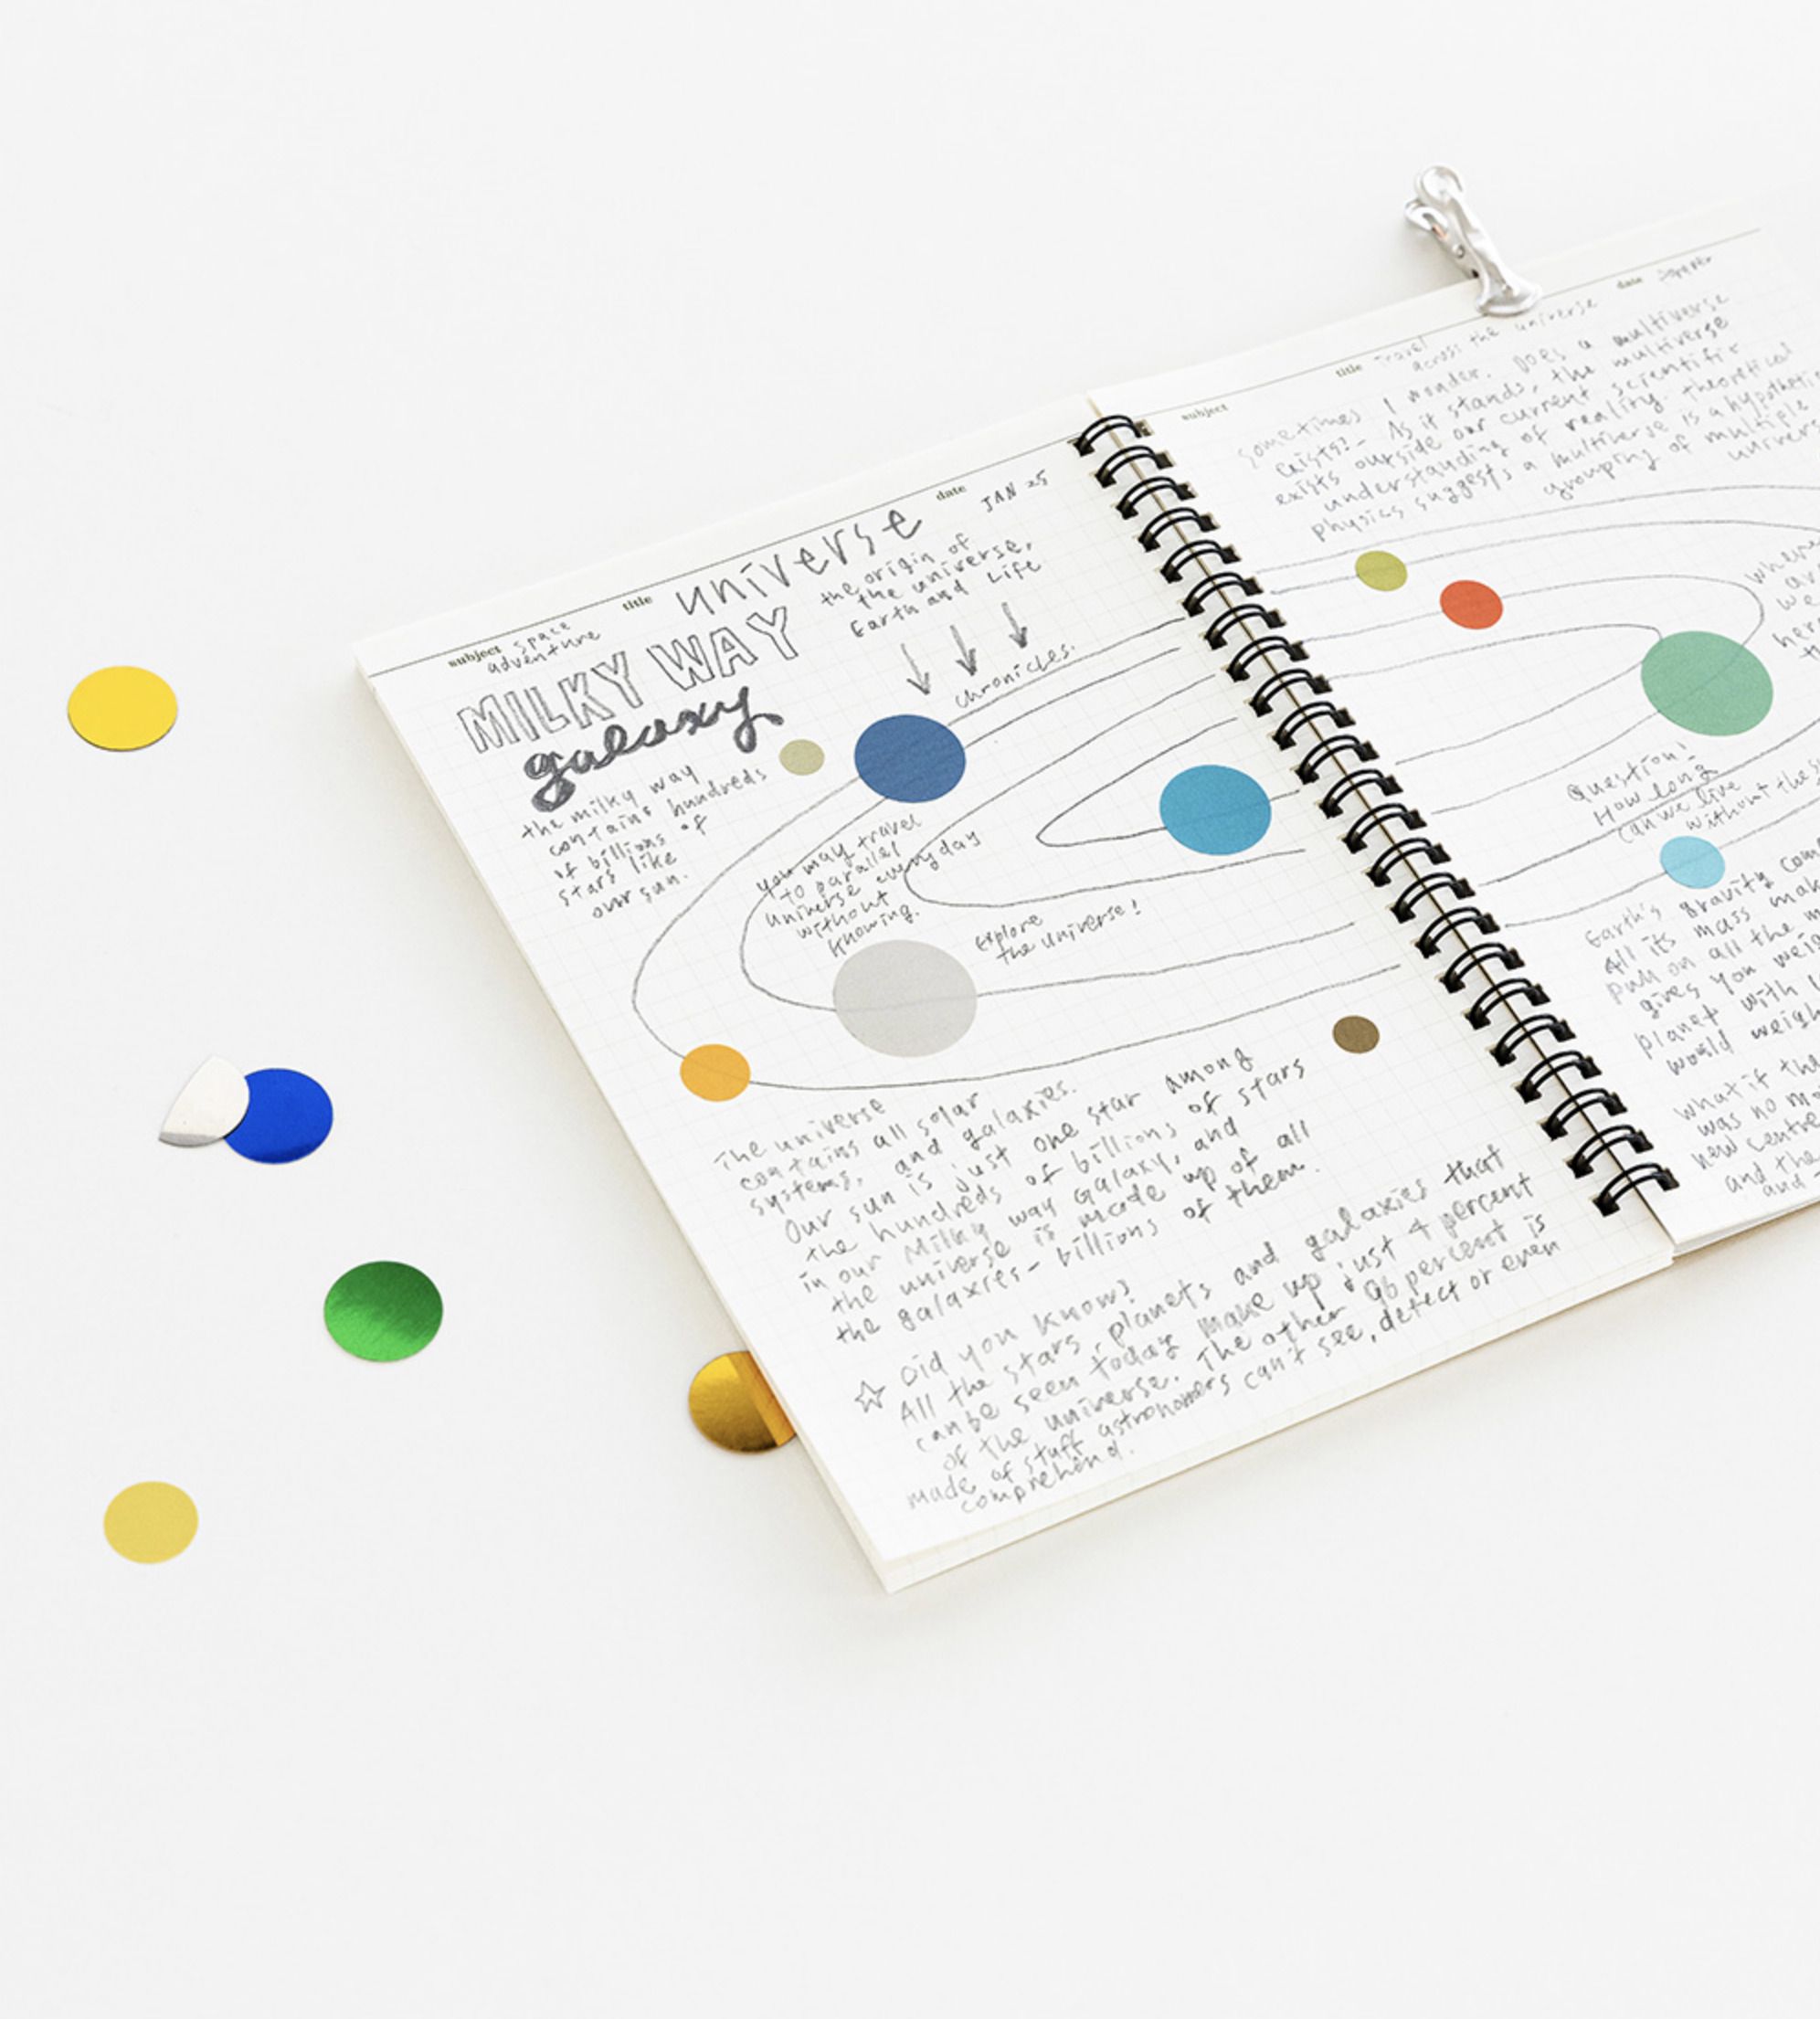 subject space
adventure
title universe
date JAN 25
MILKY WAY
galaxy
the origin of
the universe,
Earth and Life
chronicles.
the milky way
contains hundreds
of billions of
stars like
our sun.
you may travel
to parallel
universe everyday
without
knowing.
Explore
the universe!
The universe
contains all solar
systems, and galaxies.
Our sun is just one star among
the hundreds of billions of stars
in our Milky way Galaxy, and
the universe is made up of all
the galaxies - billions of them.
☆ Did you know?
All the stars, planets and galaxies that
can be seen today make up just 4 percent
of the universe. The other 96 percent is
made of stuff astronomers can't see, detect or even
comprehend.
subject
title Travel
across the universe
date
sometimes I wonder. Does a multiverse
exists?- As it stands, the multiverse
exists outside our current scientific
understanding of reality. theoretical
physics suggests a multiverse is a hypothetic
grouping of multiple
univers
where
are
we
here
Question!
How long
can we live
without the s
Earth's gravity com
All its mass mak
pull on all the m
gives you weig
planet with l
would weigh
what if tha
was no mo
new centre
and the
and